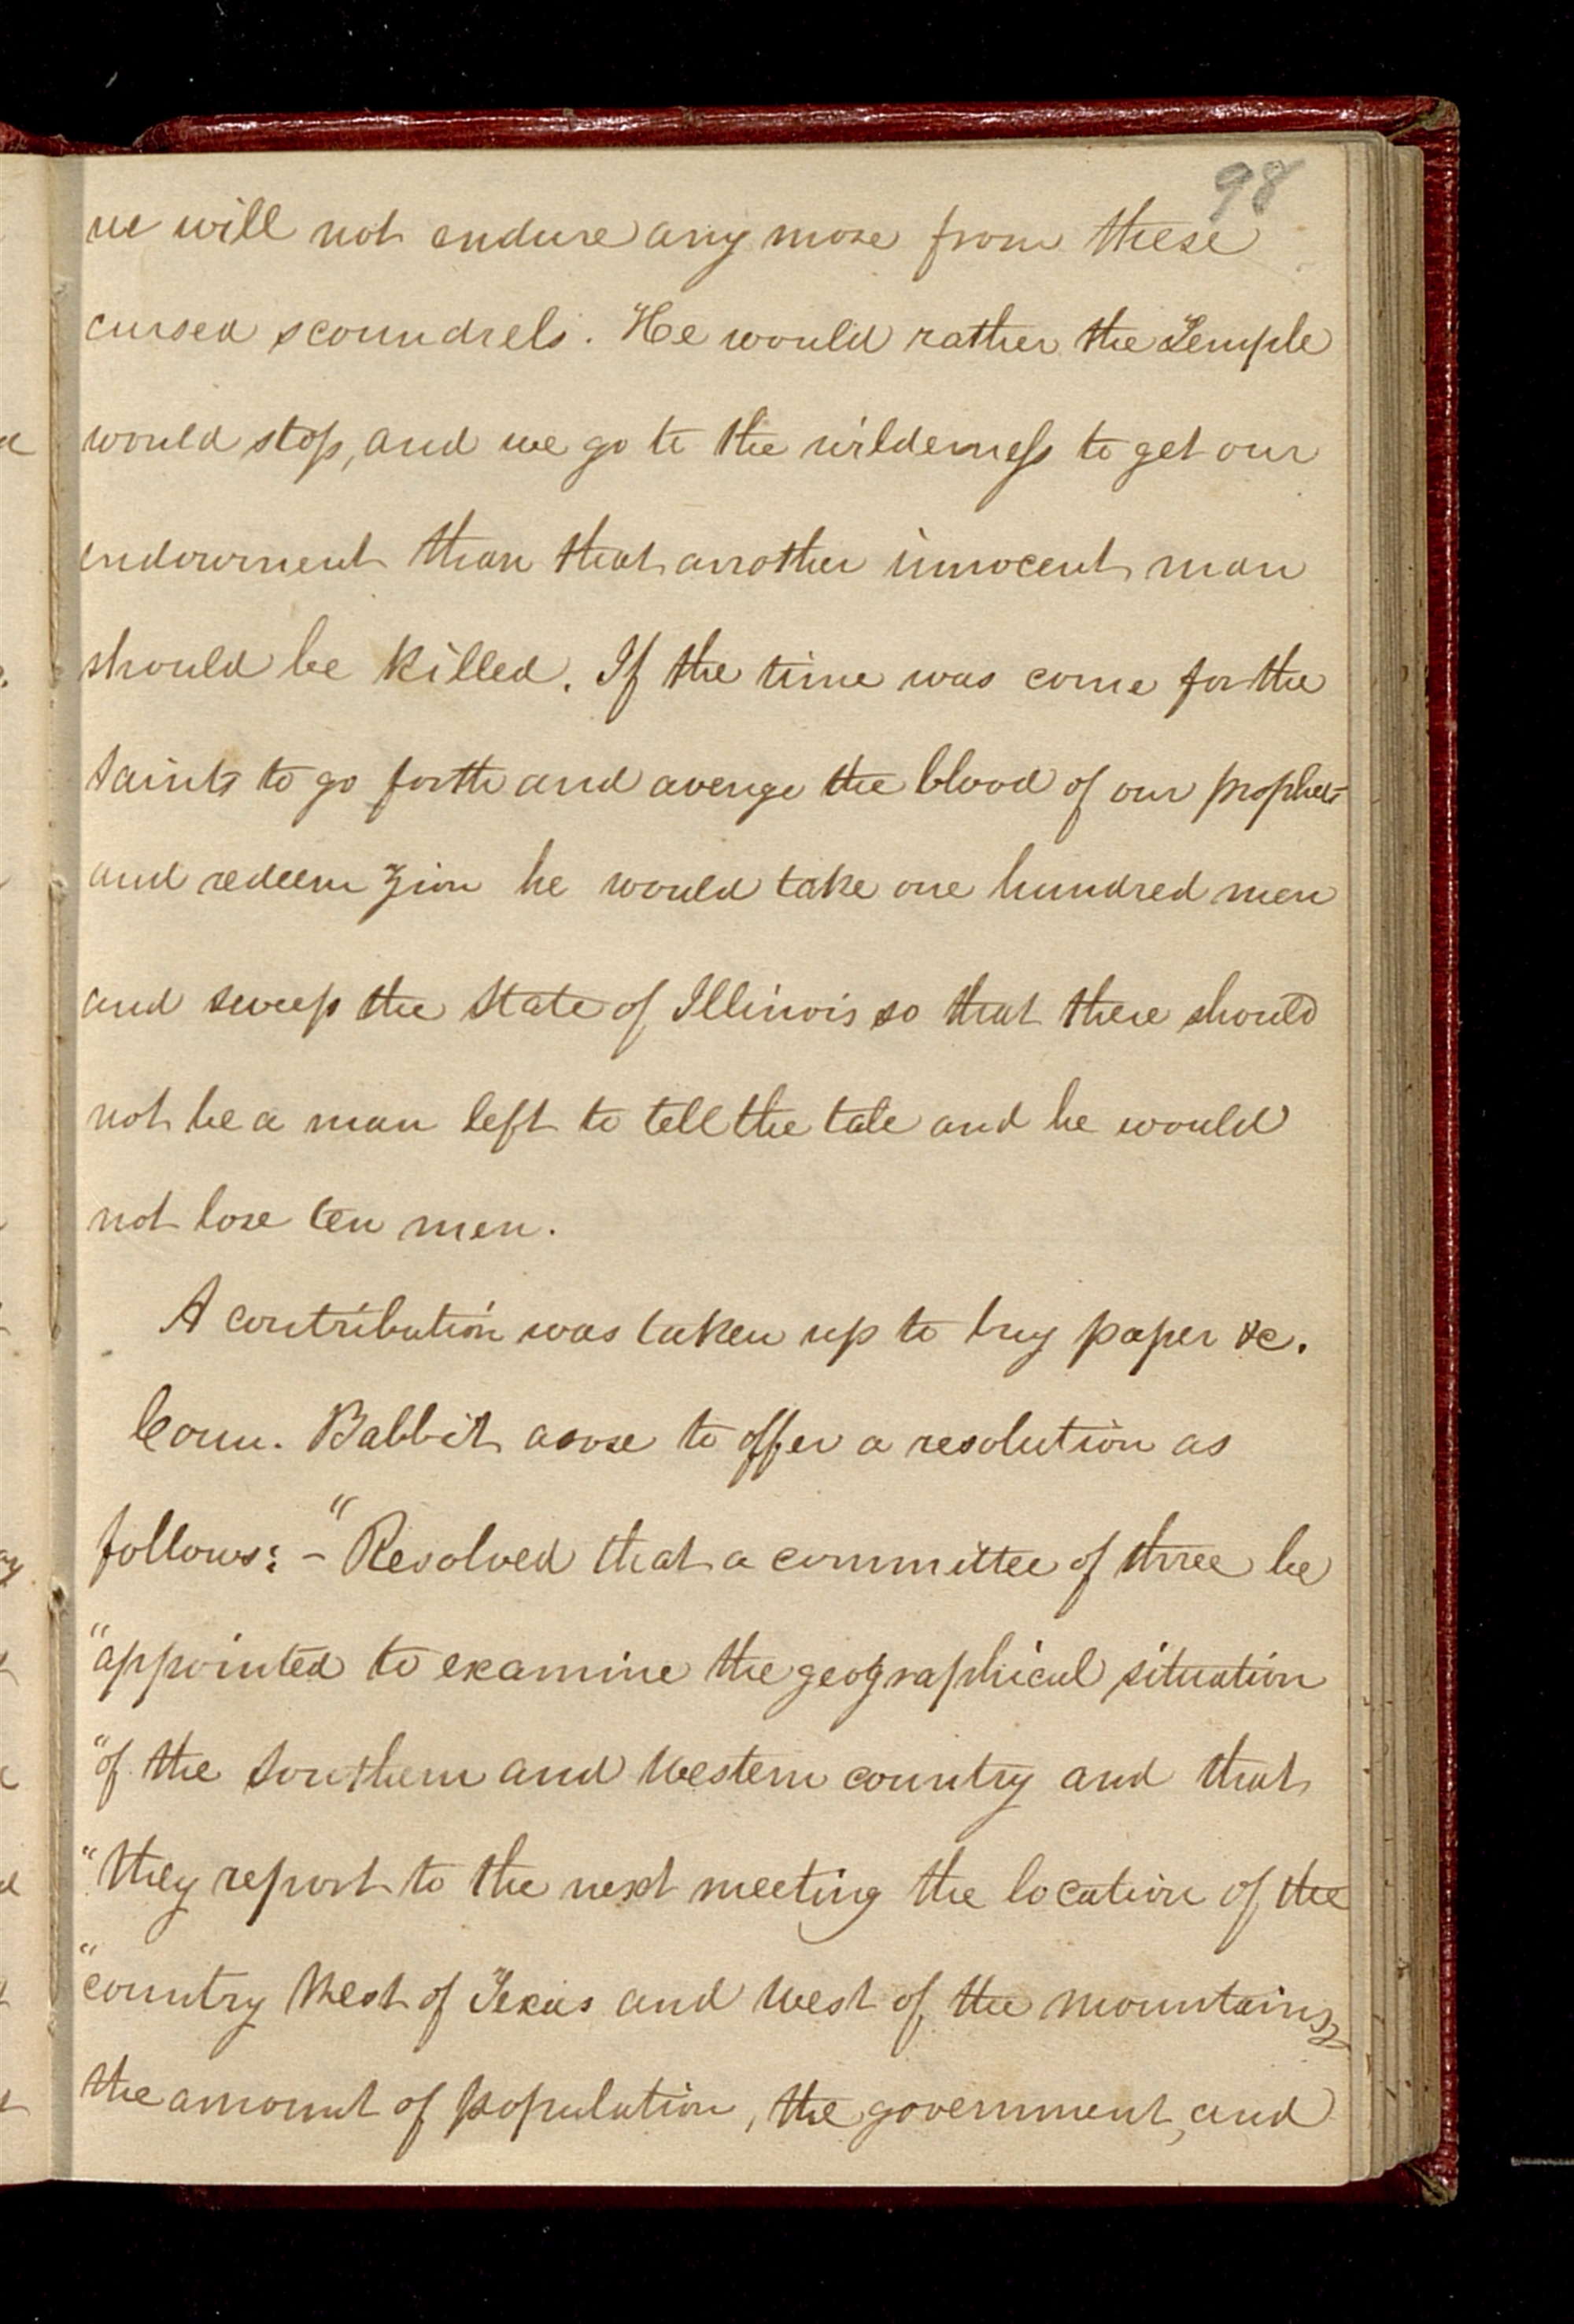 98
we will not endure any more from these
cursed scoundrels. He would rather the Temple
would stop, and we go to the wilderness to get our
endowment than that another innocent man
should be killed. If the time was come for the
saints to go forth and avenge the blood of our prophets
and redeem Zion he would take one hundred men
and sweep the State of Illinois so that there should
not be a man left to tell the tale and he would
not lose ten men.
A contribution was taken up to buy paper &c.
Coun. Babbit arose to offer a resolution as
follows: - "Resolved that a committee of three be
"appointed to examine the geographical situation
"of the Southern and Western country and that
"they report to the next meeting the location of the
"country West of Texas and West of the mountains,
the amount of population, the government, and